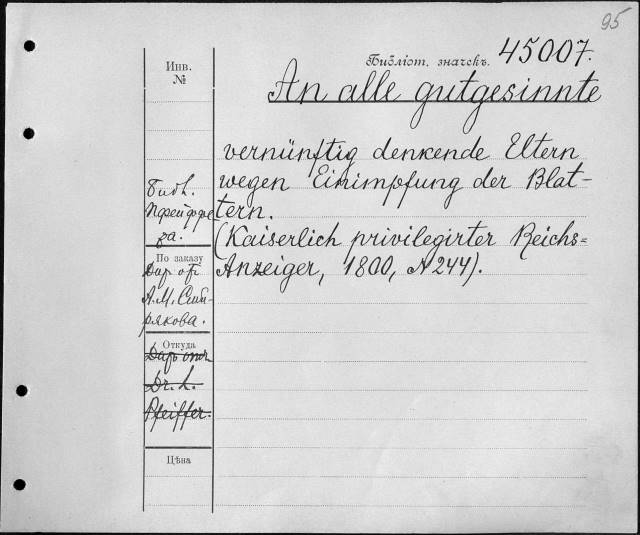 95
Библіот. значекъ. 45007.
An alle gutgesinnte
vernünftig denkende Eltern
wegen Einimpfung der Blat-
tern.
(Kaiserlich privilegirter Reichs=
Anzeiger, 1800, N 244).
Инв.
№
Библ.
Пфейффе
ра.
По заказу
Даръ отъ
А. М. Сиби-
рякова.
Откуда
Даръ отъ
Dr. L.
Pfeiffer.
Цѣна